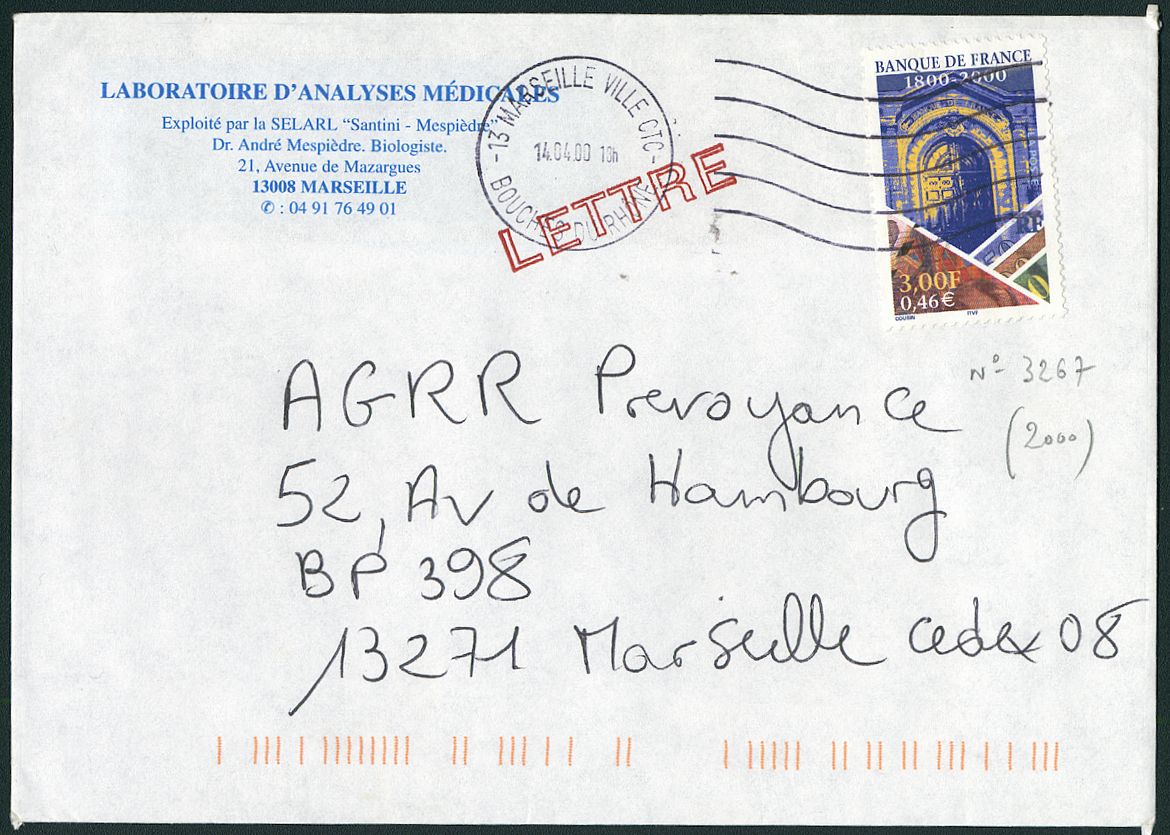 LABORATOIRE D'ANALYSES MÉDICALES
Exploité par la SELARL “Santini - Mespièdre”
Dr. André Mespièdre. Biologiste.
21, Avenue de Mazargues
13008 MARSEILLE
✆ : 04 91 76 49 01
-13 MARSEILLE VILLE CTC-
14.04.00 18h
BOUCHES DU RHONE
LETTRE
BANQUE DE FRANCE
1800-2000
BANQUE DE FRANCE
LA POSTE
RF
3,00F
0,46€
COUSIN ITVF
N° 3267
(2000)
AGRR Prevoyance
52, Av de Hambourg
BP 398
13271 Marseille cedex 08